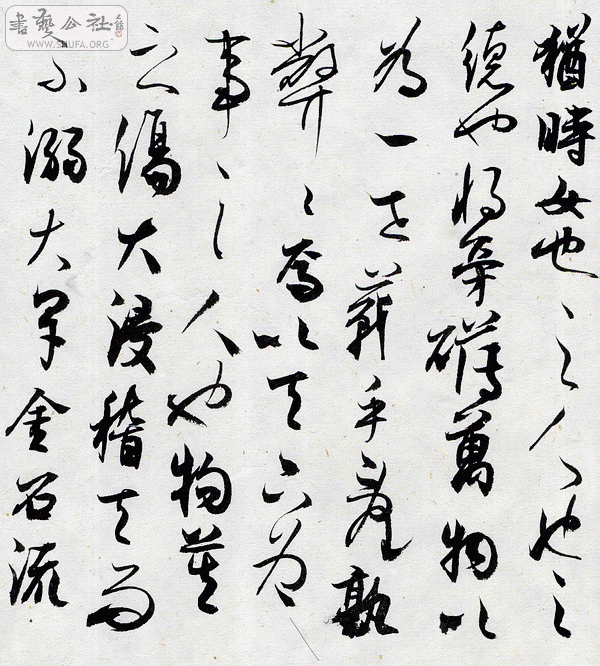 猶時女也之人也之
德也將旁礴萬物以
為一世蘄乎亂孰
弊〻焉以天下為
事之人也物莫
之傷大浸稽天而
不溺大旱金石流
書藝公社
WWW.SHUFA.ORG